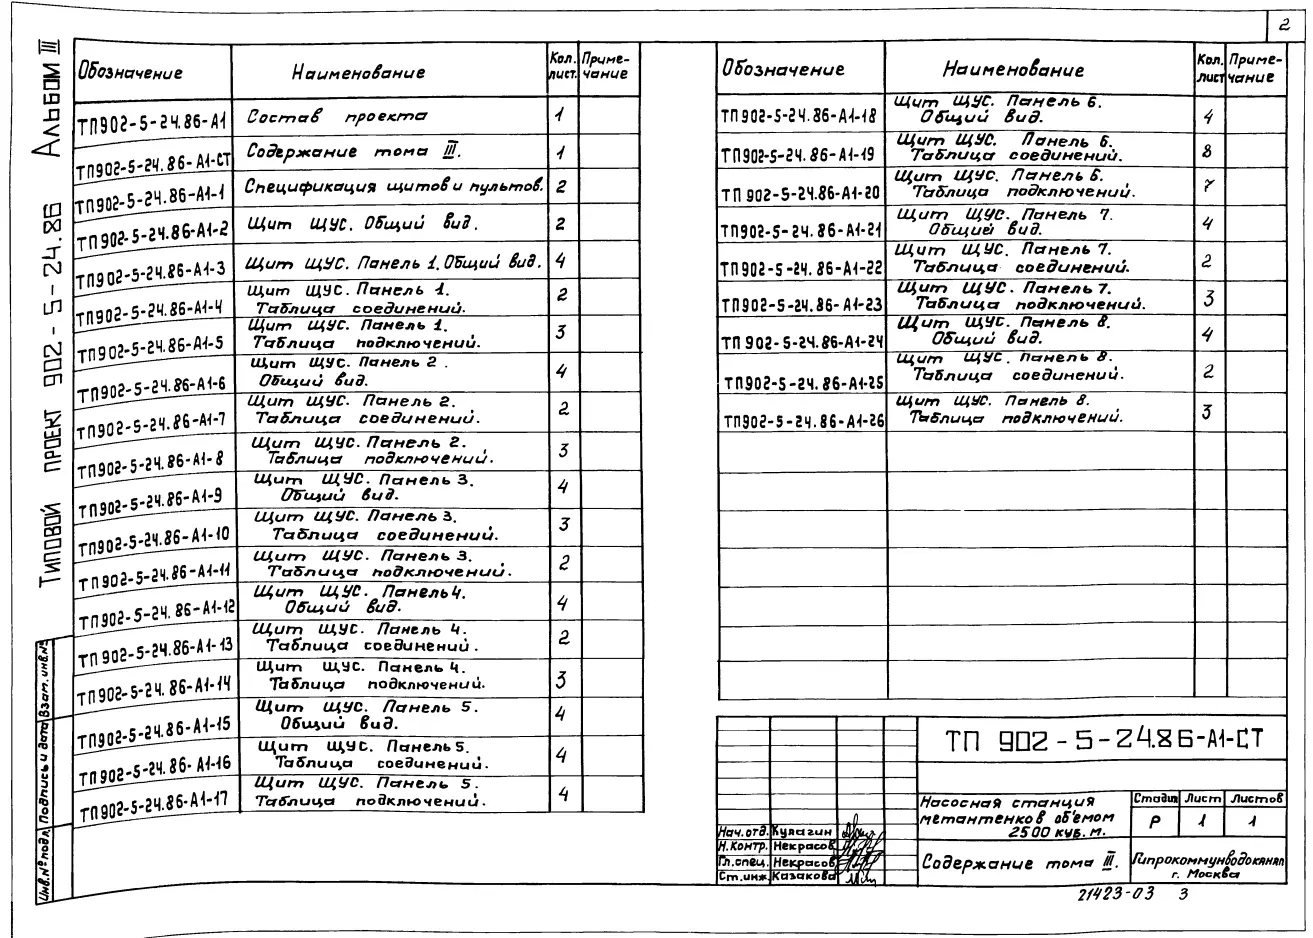 2
Альбом III
Типовой проект 902-5-24.86
Обозначение Наименование Кол. лист. Приме-чание
ТП902-5-24.86-А1 Состав проекта 1
ТП902-5-24.86-А1-СТ Содержание тома III. 1
ТП902-5-24.86-А1-1 Спецификация щитов и пультов. 2
ТП902-5-24.86-А1-2 Щит ЩУС. Общий вид. 2
ТП902-5-24.86-А1-3 Щит ЩУС. Панель 1. Общий вид. 4
ТП902-5-24.86-А1-4 Щит ЩУС. Панель 1. Таблица соединений. 2
ТП902-5-24.86-А1-5 Щит ЩУС. Панель 1. Таблица подключений. 3
ТП902-5-24.86-А1-6 Щит ЩУС. Панель 2. Общий вид. 4
ТП902-5-24.86-А1-7 Щит ЩУС. Панель 2. Таблица соединений. 2
ТП902-5-24.86-А1-8 Щит ЩУС. Панель 2. Таблица подключений. 3
ТП902-5-24.86-А1-9 Щит ЩУС. Панель 3. Общий вид. 4
ТП902-5-24.86-А1-10 Щит ЩУС. Панель 3. Таблица соединений. 3
ТП902-5-24.86-А1-11 Щит ЩУС. Панель 3. Таблица подключений. 2
ТП902-5-24.86-А1-12 Щит ЩУС. Панель 4. Общий вид. 4
ТП902-5-24.86-А1-13 Щит ЩУС. Панель 4. Таблица соединений. 2
ТП902-5-24.86-А1-14 Щит ЩУС. Панель 4. Таблица подключений. 3
ТП902-5-24.86-А1-15 Щит ЩУС. Панель 5. Общий вид. 4
ТП902-5-24.86-А1-16 Щит ЩУС. Панель 5. Таблица соединений. 4
ТП902-5-24.86-А1-17 Щит ЩУС. Панель 5. Таблица подключений. 4
Обозначение Наименование Кол. лист Приме-чание
ТП902-5-24.86-А1-18 Щит ЩУС. Панель 6. Общий вид. 4
ТП902-5-24.86-А1-19 Щит ЩУС. Панель 6. Таблица соединений. 8
ТП902-5-24.86-А1-20 Щит ЩУС. Панель 6. Таблица подключений. 7
ТП902-5-24.86-А1-21 Щит ЩУС. Панель 7. Общий вид. 4
ТП902-5-24.86-А1-22 Щит ЩУС. Панель 7. Таблица соединений. 2
ТП902-5-24.86-А1-23 Щит ЩУС. Панель 7. Таблица подключений. 3
ТП902-5-24.86-А1-24 Щит ЩУС. Панель 8. Общий вид. 4
ТП902-5-24.86-А1-25 Щит ЩУС. Панель 8. Таблица соединений. 2
ТП902-5-24.86-А1-26 Щит ЩУС. Панель 8. Таблица подключений. 3
Инв.№ подл. Подпись и дата Взам. инв.№
ТП 902-5-24.86-А1-СТ
Насосная станция
метантенков объемом
2500 куб. м.
Стадия Лист Листов
Р 1 1
Нач. отд. Кулагин
Н.Контр. Некрасов
Гл.спец. Некрасов
Ст.инж. Казакова
Содержание тома III.
Гипрокоммунводоканал
г. Москва
21423-03 3